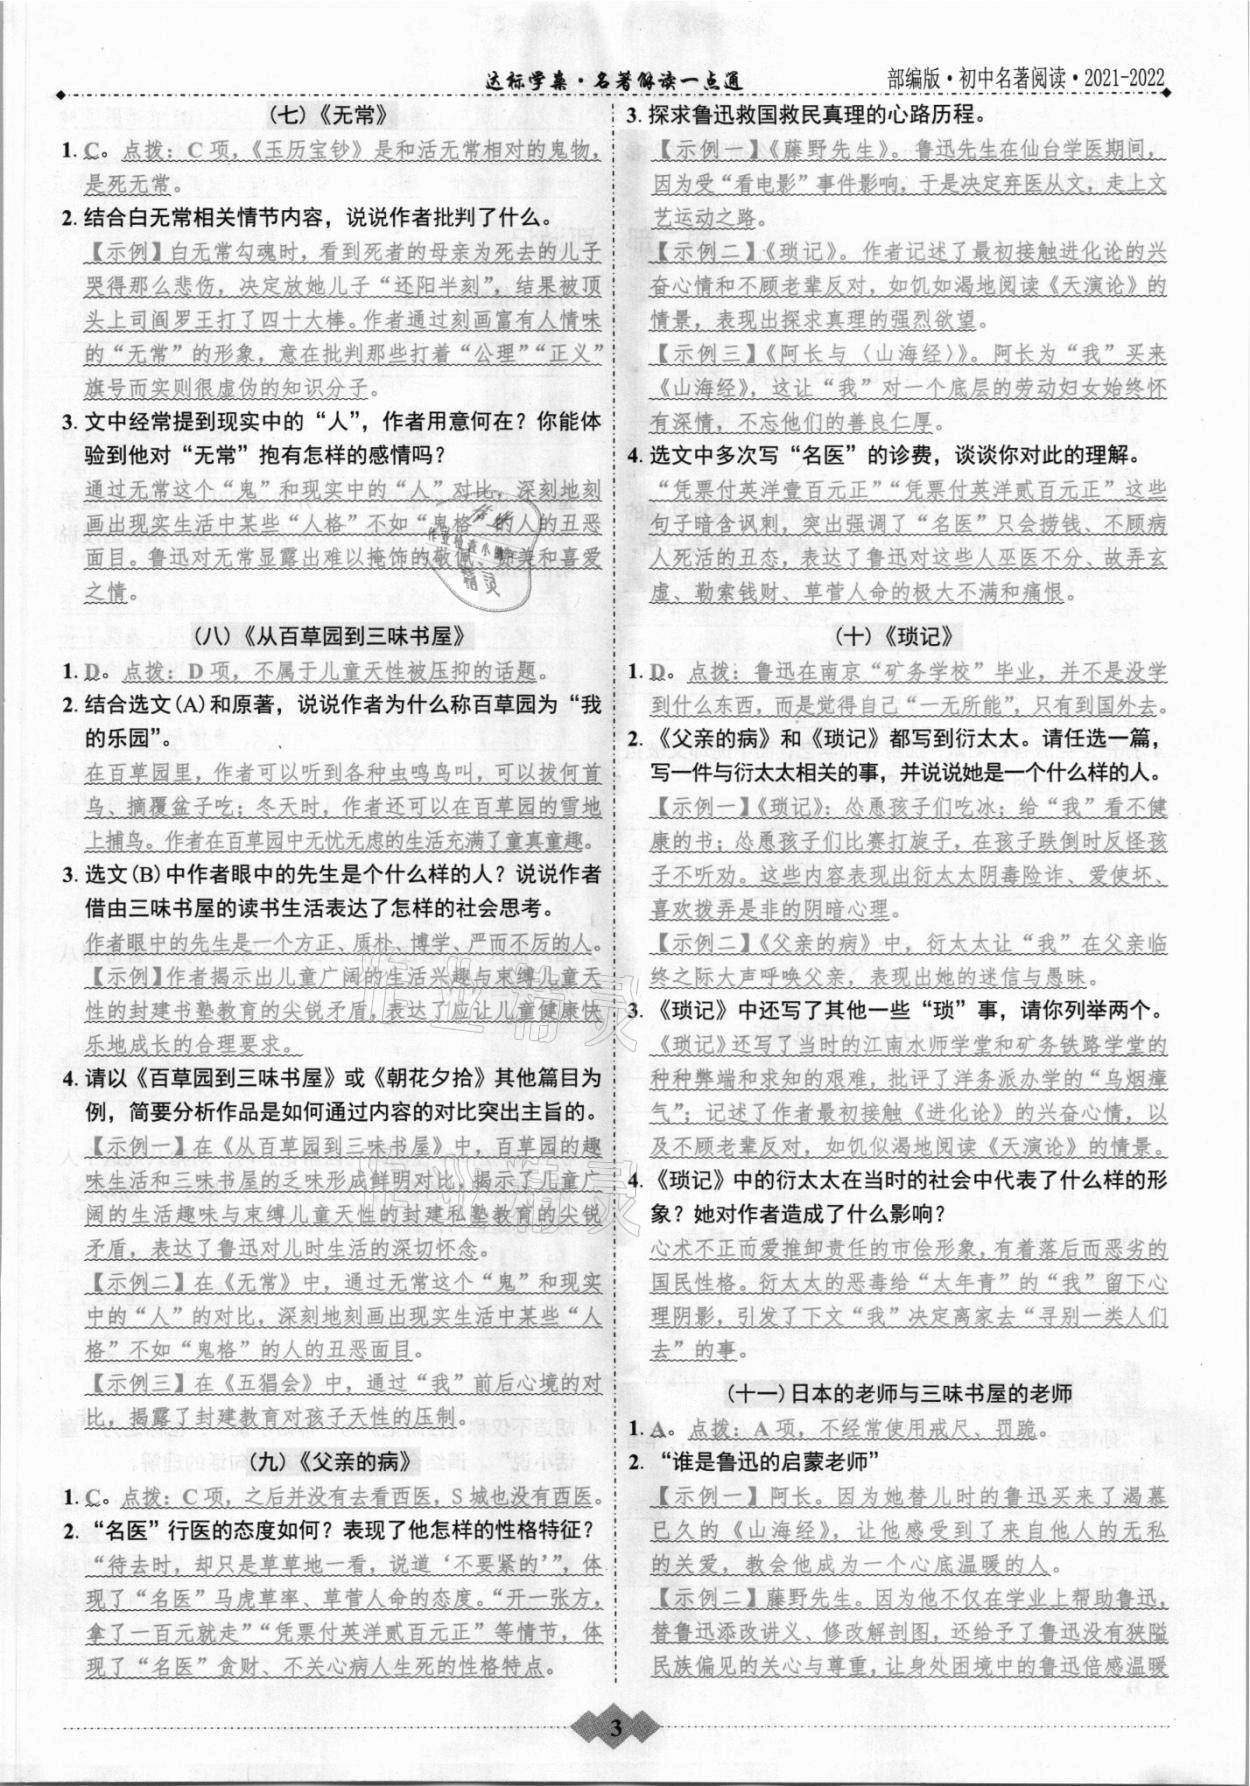 达标学案·名著解读一点通
部编版·初中名著阅读·2021-2022
(七)《无常》
1. C。点拨：C 项，《玉历宝钞》是和活无常相对的鬼物，
是死无常。
2. 结合白无常相关情节内容，说说作者批判了什么。
【示例】白无常勾魂时，看到死者的母亲为死去的儿子
哭得那么悲伤，决定放她儿子“还阳半刻”，结果被顶
头上司阎罗王打了四十大棒。作者通过刻画富有人情味
的“无常”的形象，意在批判那些打着“公理”“正义”
旗号而实则很虚伪的知识分子。
3. 文中经常提到现实中的“人”，作者用意何在？你能体
验到他对“无常”抱有怎样的感情吗？
通过无常这个“鬼”和现实中的“人”对比，深刻地刻
画出现实生活中某些“人格”不如“鬼格”的人的丑恶
面目。鲁迅对无常显露出难以掩饰的敬佩、赞美和喜爱
之情。
(八)《从百草园到三味书屋》
1. D。点拨：D 项，不属于儿童天性被压抑的话题。
2. 结合选文(A)和原著，说说作者为什么称百草园为“我
的乐园”。
在百草园里，作者可以听到各种虫鸣鸟叫，可以拔何首
乌、摘覆盆子吃；冬天时，作者还可以在百草园的雪地
上捕鸟。作者在百草园中无忧无虑的生活充满了童真童趣。
3. 选文(B)中作者眼中的先生是个什么样的人？说说作者
借由三味书屋的读书生活表达了怎样的社会思考。
作者眼中的先生是一个方正、质朴、博学、严而不厉的人。
【示例】作者揭示出儿童广阔的生活兴趣与束缚儿童天
性的封建书塾教育的尖锐矛盾，表达了应让儿童健康快
乐地成长的合理要求。
4. 请以《百草园到三味书屋》或《朝花夕拾》其他篇目为
例，简要分析作品是如何通过内容的对比突出主旨的。
【示例一】在《从百草园到三味书屋》中，百草园的趣
味生活和三味书屋的乏味形成鲜明对比，揭示了儿童广
阔的生活趣味与束缚儿童天性的封建私塾教育的尖锐
矛盾，表达了鲁迅对儿时生活的深切怀念。
【示例二】在《无常》中，通过无常这个“鬼”和现实
中的“人”的对比，深刻地刻画出现实生活中某些“人
格”不如“鬼格”的人的丑恶面目。
【示例三】在《五猖会》中，通过“我”前后心境的对
比，揭露了封建教育对孩子天性的压制。
(九)《父亲的病》
1. C。点拨：C 项，之后并没有去看西医，S 城也没有西医。
2. “名医”行医的态度如何？表现了他怎样的性格特征？
“待去时，却只是草草地一看，说道‘不要紧的’”，体
现了“名医”马虎草率、草菅人命的态度。“开一张方，
拿了一百元就走”“凭票付英洋贰百元正”等情节，体
现了“名医”贪财、不关心病人生死的性格特点。
3. 探求鲁迅救国救民真理的心路历程。
【示例一】《藤野先生》。鲁迅先生在仙台学医期间，
因为受“看电影”事件影响，于是决定弃医从文，走上文
艺运动之路。
【示例二】《琐记》。作者记述了最初接触进化论的兴
奋心情和不顾老辈反对，如饥如渴地阅读《天演论》的
情景，表现出探求真理的强烈欲望。
【示例三】《阿长与〈山海经〉》。阿长为“我”买来
《山海经》，这让“我”对一个底层的劳动妇女始终怀
有深情，不忘他们的善良仁厚。
4. 选文中多次写“名医”的诊费，谈谈你对此的理解。
“凭票付英洋壹百元正”“凭票付英洋贰百元正”这些
句子暗含讽刺，突出强调了“名医”只会捞钱、不顾病
人死活的丑态，表达了鲁迅对这些人巫医不分、故弄玄
虚、勒索钱财、草菅人命的极大不满和痛恨。
(十)《琐记》
1. D。点拨：鲁迅在南京“矿务学校”毕业，并不是没学
到什么东西，而是觉得自己“一无所能”，只有到国外去。
2. 《父亲的病》和《琐记》都写到衍太太。请任选一篇，
写一件与衍太太相关的事，并说说她是一个什么样的人。
【示例一】《琐记》：怂恿孩子们吃冰；给“我”看不健
康的书；怂恿孩子们比赛打旋子，在孩子跌倒时反怪孩
子不听劝。这些内容表现出衍太太阴毒险诈、爱使坏、
喜欢拨弄是非的阴暗心理。
【示例二】《父亲的病》中，衍太太让“我”在父亲临
终之际大声呼唤父亲，表现出她的迷信与愚昧。
3. 《琐记》中还写了其他一些“琐”事，请你列举两个。
《琐记》还写了当时的江南水师学堂和矿务铁路学堂的
种种弊端和求知的艰难，批评了洋务派办学的“乌烟瘴
气”；记述了作者最初接触《进化论》的兴奋心情，以
及不顾老辈反对，如饥似渴地阅读《天演论》的情景。
4. 《琐记》中的衍太太在当时的社会中代表了什么样的形
象？她对作者造成了什么影响？
心术不正而爱推卸责任的市侩形象，有着落后而恶劣的
国民性格。衍太太的恶毒给“太年青”的“我”留下心
理阴影，引发了下文“我”决定离家去“寻别一类人们
去”的事。
(十一)日本的老师与三味书屋的老师
1. A。点拨：A 项，不经常使用戒尺、罚跪。
2. “谁是鲁迅的启蒙老师”
【示例一】阿长。因为她替儿时的鲁迅买来了渴慕
已久的《山海经》，让他感受到了来自他人的无私
的关爱，教会他成为一个心底温暖的人。
【示例二】藤野先生。因为他不仅在学业上帮助鲁迅，
替鲁迅添改讲义、修改解剖图，还给予了鲁迅没有狭隘
民族偏见的关心与尊重，让身处困境中的鲁迅倍感温暖
3
作业精灵
作业精灵